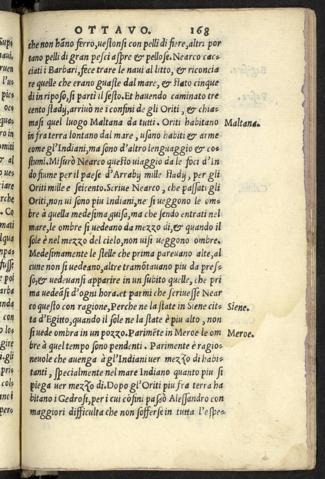 OTTAVO. 168
che non hãno ferro, uestonsi con pelli di fiere, altri por
tano pelli di gran pesci aspre & pellose. Nearco cac-
ciati i Barbari, fece trare le naui al litto, & riconcia
re quelle che erano guaste dal mare, & stato cinque
di in riposo, si partì il sesto. Et hauendo caminato tre
cento stady, arriuò ne i confini de gli Oriti, & chia-
masi quel luogo Maltana da tutti. Oriti habitano
Maltana.
in fra terra lontano dal mare, usano habiti & arme
come gl'Indiani, ma sono d'altro lenguaggio & co-
stumi. Misurò Nearco questo uiaggio da le foci d'In
do fiume per il paese d'Arraby mille stady, per gli
Oriti mille e seicento. Scriue Nearco, che passati gli
Oriti, non ui sono piu Indiani, ne si ueggono le om-
bre à quella medesima guisa, ma che jendo entrati nel
mare, le ombre si uedeano da mezo dì, & quando il
sole è nel mezo del cielo, non ui si ueggono ombre.
Medesimamente le stelle che prima pareuano alte, al
cune non si uedeano, altre tramõtauano piu da pres-
so, & uedeuansi apparire in un subito quelle, che pri
ma uedeãsi d'ogni hora. et parmi che scriuesse Near
co questo con ragione, Perche ne la state in Siene cit-
Siene.
ta d'Egitto, quando il sole ne la state è piu alto, non
si uede ombra in un pozzo. Parimẽte in Meroe le om
Meroe.
bre à quel tempo sono pendenti. Parimente è ragio-
neuole che auenga à gl'Indiani uer mezzo dì habi-
tanti, specialmente nel mare Indiano quanto piu si
piega uer mezzo dì. Dopo gl'Oriti piu fra terra ha
bitano i Gedrosi, per i cui cõfini passò Alessandro con
maggiori difficulta che non sofferse in tutta l'espe-